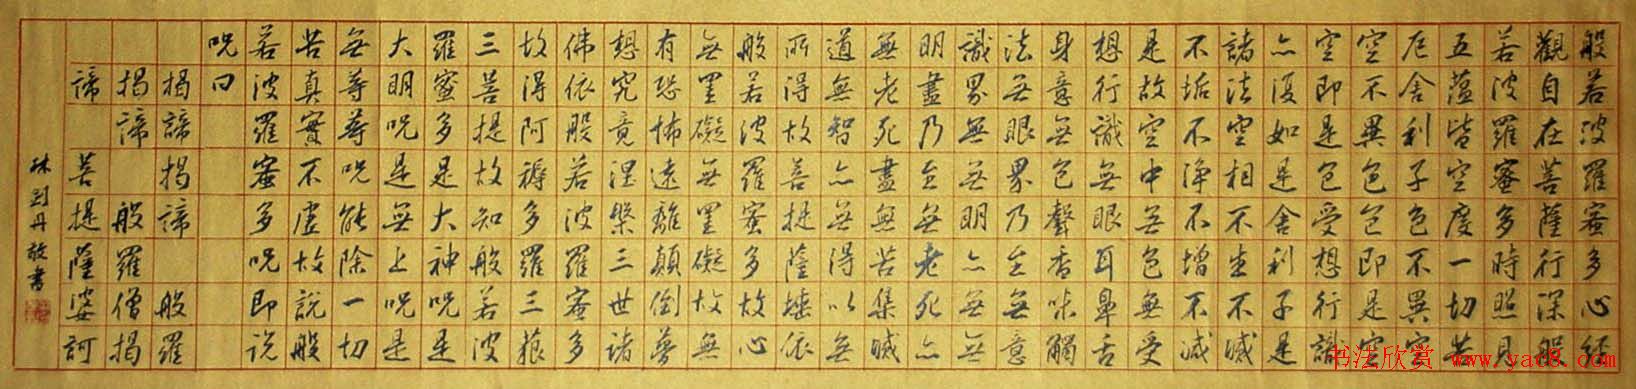 般若波羅蜜多心經
觀自在菩薩行深般
若波羅蜜多時照見
五蘊皆空度一切苦
厄舍利子色不異空
空不異色色即是空
空即是色受想行識
亦復如是舍利子是
諸法空相不生不滅
不垢不淨不增不減
是故空中無色無受
想行識無眼耳鼻舌
身意無色聲香味觸
法無眼界乃至無意
識界無無明亦無無
明盡乃至無老死亦
無老死盡無苦集滅
道無智亦無得以無
所得故菩提薩埵依
般若波羅蜜多故心
無罣礙無罣礙故無
有恐怖遠離顛倒夢
想究竟涅槃三世諸
佛依般若波羅蜜多
故得阿耨多羅三藐
三菩提故知般若波
羅蜜多是大神呪是
大明呪是無上呪是
無等等呪能除一切
苦真實不虛故說般
若波羅蜜多呪即說
呪曰
揭諦揭諦 般羅
揭諦 般羅僧揭
諦 菩提薩婆訶
林剑丹敬書
书法欣赏 www.yac8.com